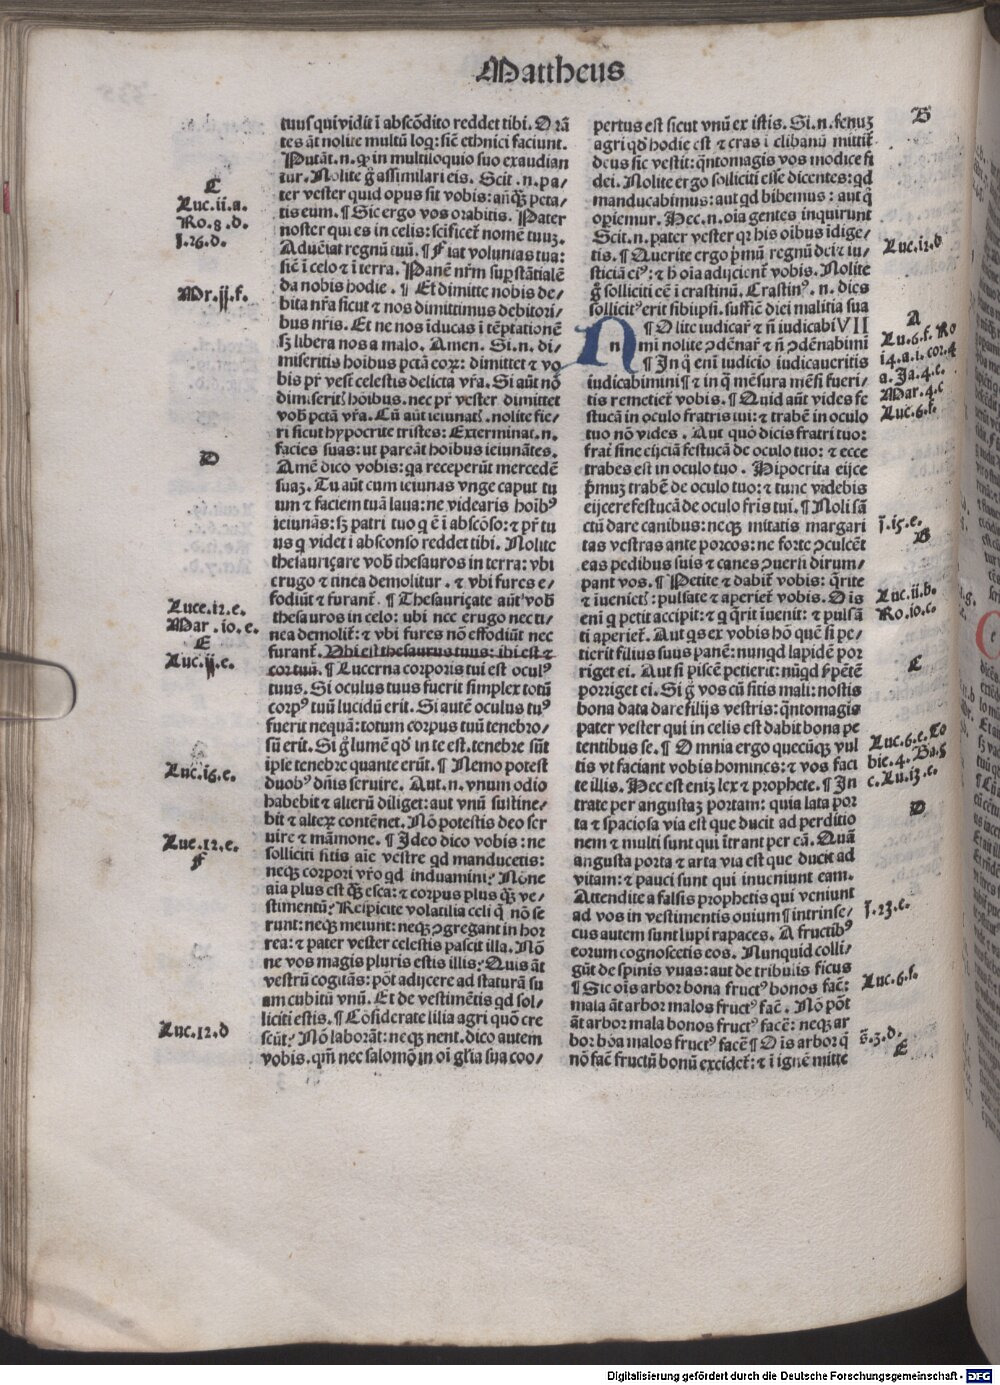 Mattheus
tuus qui vidit ī abscōdito reddet tibi. Orā
tes āt nolite multū loq: sic̄ ethnici faciunt.
Putāt .n. ꝙ in multiloquio suo exaudian
tur. Nolite g̊ assimilari eis. Scit .n. pa/
ter vester quid opus sit vobis: añq̄ꝫ peta/
tis eum. ¶ Sic ergo vos orabitis. Pater
noster qui es in celis: scificet̄ nomē tuuꝫ.
Aduēiat regnū tuū. ¶ Fiat voluntas tua:
sic̄ ī celo ⁊ ī terra. Panē nr̄m supstātialē
da nobis hodie. ¶ Et dimitte nobis de/
bita nr̄a sicut ⁊ nos dimittimus debitori/
bus nr̄is. Et ne nos īducas ī tēptationē
sꝫ libera nos a malo. Amen. Si .n. di/
miseritis hoibus pctā eoꝝ: dimittet ⁊ vo
bis pr̄ vesť celestis delicta vr̄a. Si aūt nō
dimiserit꜄ hoibus. nec pr̄ vester dimittet
vob̄ pctā vr̄a. Cū aūt ieiunat꜄. nolite fie/
ri sicut hypocrite tristes: Exterminat .n.
facies suas: ut pareāt hoibus ieiunātes.
Amē dico vobis: qa receperūt mercedē
suaꝫ. Tu aūt cum ieiunas vnge caput tu
um ⁊ faciem tuā laua: ne videaris hoib⁹
ieiunās: sꝫ patri tuo q ē ī abscōso: ⁊ pr̄ tu
us q videt ī absconso reddet tibi. Nolite
thesauriçare vob̄ thesauros in terra: vbi
erugo ⁊ tinea demolitur. ⁊ vbi fures e/
fodiūt ⁊ furant̄. ¶ Thesauriçate aūt vob̄
thesauros in celo: ubi nec erugo nec ti/
nea demolit̄: ⁊ vbi fures nō effodiūt nec
furant̄. Vbi est thesaurus tuus: ibi est ⁊
cor tuū. ¶ Lucerna corporis tui est ocul⁹
tuus. Si oculus tuus fuerit simplex totū
corp⁹ tuū lucidū erit. Si autē oculus tu⁹
fuerit nequā: totum corpus tuū tenebro/
sū erit. Si g̊ lumē qđ in te est. tenebre sūt
ipse tenebre quante erūt. ¶ Nemo potest
duob⁹ dn̄is seruire. Aut .n. vnum odio
habebit ⁊ alterū diliget: aut vnū sustine/
bit ⁊ alteꝝ contēnet. Nō potestis deo ser
uire ⁊ māmone. ¶ Ideo dico vobis: ne
solliciti sitis aīe vestre qd manducetis:
neqꝫ corpori vr̄o qd induamini? Nōne
aīa plus est q̄ꝫ esca: ⁊ corpus plus q̄ꝫ ve/
stimentū? Respicite volatilia celi q̄ nō se
runt: neqꝫ metunt: neqꝫ ꝯgregant in hor
rea: ⁊ pater vester celestis pascit illa. Nō
ne vos magis pluris estis illis? Quis āt
vestrū cogitās: pōt adijcere ad staturā su
am cubitū vnū. Et de vestimētis qd sol/
liciti estis. ¶ Cōsiderate lilia agri quō cre
scūt? Nō laborāt: neqꝫ nent. dico autem
vobis. qm̄ nec salomō in oī gl̄ia sua coo/
C
Luc.ii.a.
Ro.8.d.
J.26.d.
Mr.ij.f.
D
Luce.12.e.
Mar.10.e.
E
Luc.ij.e.
Luc.16.e.
Luc.12.e.
F
Luc.12.d
pertus est sicut vnū ex istis. Si .n. fenuꝫ
agri qđ hodie est ⁊ cras ī clibanū mittit̄
deus sic vestit: q̄ntomagis vos modice fi
dei. Nolite ergo solliciti esse dicentes: qd
manducabimus: aut qd bibemus: aut q̊
opiemur. Hec .n. oīa gentes inquirunt
Scit .n. pater vester qꝛ his oībus īdige/
tis. ¶ Querite ergo pmū regnū dei ⁊ iu/
sticiā ei⁹: ⁊ h̄ oīa adijcient̄ vobis. Nolite
g̊ solliciti eē ī crastinū. Crastin⁹ .n. dies
sollicit⁹ erit sibiipsi. suffic̄ diei malitia sua
¶ Olite iudicar̄ ⁊ ñ iudicabi VII
n mi nolite ꝯdēnar̄ ⁊ ñ ꝯdēnabimi
¶ In q̊ eni iudicio iudicaueritis
iudicabimini ¶ ⁊ in q̊ mēsura mēsi fueri/
tis remetiet̄ vobis. ¶ Quid aūt vides fe
stucā in oculo fratris tui: ⁊ trabē in oculo
tuo nō vides. Aut quō dicis fratri tuo:
frať sine eijciā festucā de oculo tuo: ⁊ ecce
trabes est in oculo tuo. Hipocrita eijce
pmuꝫ trabē de oculo tuo: ⁊ tunc videbis
eijcere festucā de oculo fris tui. ¶ Noli sā
ctū dare canibus: neqꝫ mitatis margari
tas vestras ante porcos: ne forte ꝯculcēt
eas pedibus suis ⁊ canes ꝯuersi dirum/
pant vos. ¶ Petite ⁊ dabit̄ vobis: q̄rite
⁊ īueniet꜄: pulsate ⁊ aperiet̄ vobis. Ois
eni q petit accipit: ⁊ q q̄rit īuenit: ⁊ pulsā
ti aperiet̄. Aut qs ex vobis hō quē si pe/
tierit filius suus panē: nunqd lapidē por
riget ei. Aut si piscē petierit: nūqd pētē
porriget ei. Si g̊ vos cū sitis mali: nostis
bona data dare filijs vestris: q̄ntomagis
pater vester qui in celis est dabit bona pe
tentibus se. ¶ Omnia ergo quecūqꝫ vul
tis vt faciant vobis homines: ⁊ vos faci
te illis. Hec est eniꝫ lex ⁊ prophete. ¶ In
trate per angustaꝫ portam: quia lata por
ta ⁊ spaciosa via est que ducit ad perditio
nem ⁊ multi sunt qui ītrant per cā. Quā
angusta porta ⁊ arta via est que ducit ad
vitam: ⁊ pauci sunt qui inueniunt eam.
Attendite a falsis prophetis qui veniunt
ad vos in vestimentis ouium ¶ intrinse/
cus autem sunt lupi rapaces. A fructib⁹
eorum cognoscetis eos. Nunquid colli/
gūt de spinis vuas: aut de tribulis ficus
¶ Sic oīs arbor bona fruct⁹ bonos fac̄:
mala āt arbor malos fruct⁹ fac̄. Nō pōt
āt arbor mala bonos fruct⁹ facē: neqꝫ ar
bor bōa malos fruct⁹ facē ¶ Ois arbor q̄
nō fac̄ fructū bonū excidet̄: ⁊ ī ignē mitte
B
Luc.12.d
A
Lu.6.f. Ro
14.a.i.cor.4
a. Ja.4.c.
Mar.4.c
Luc.6.f.
J.15.e.
B
Luc.ii.b.
Ro.10.c.
C
Luc.6.e. To
bie.4. Ba.5
c. Lu.13.e.
D
J.23.e.
Luc.6.f.
s̄.3.d.
E
Digitalisierung gefördert durch die Deutsche Forschungsgemeinschaft - DFG